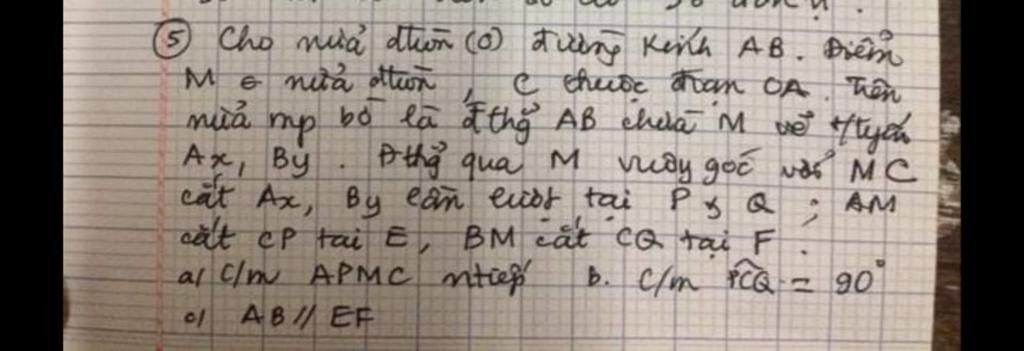 ⑤ Cho nửa đtròn (O) đường kính AB. Điểm
M ∈ nửa đtròn, C thuộc đoạn OA. Trên
nửa mp bờ là đthẳ AB chứa M vẽ t/tyến
Ax, By. Đthẳ qua M vuông góc với MC
cắt Ax, By lần lượt tại P & Q ; AM
cắt CP tại E, BM cắt CQ tại F.
a/ C/m APMC ntiếp b. C/m P̂CQ = 90°
c/ AB // EF